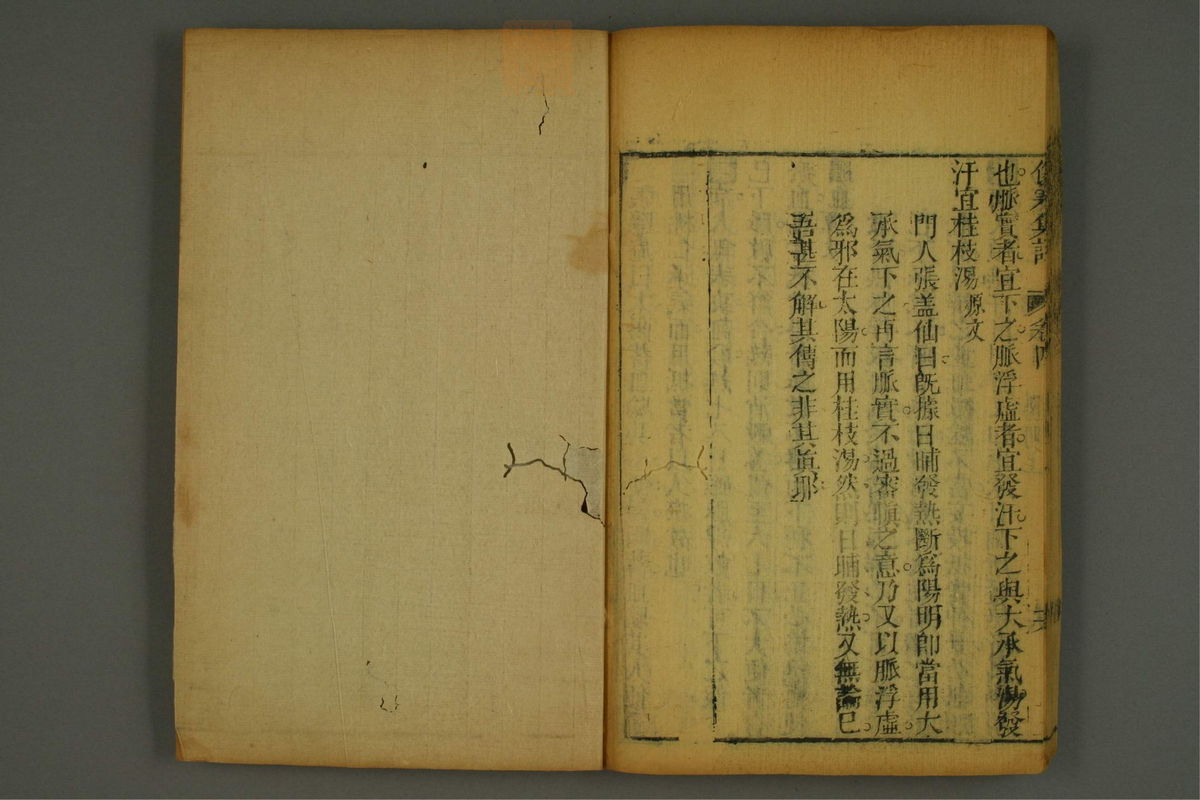 傷寒集註 卷四
也脈實者宜下之脈浮虛者宜發汗下之與大承氣湯發
汗宜桂枝湯 源文
門人張盖仙曰既據日晡發熱斷爲陽明卽當用大
承氣下之再言脈實不過審慎之意乃又以脈浮虛
爲邪在太陽而用桂枝湯然則日晡發熱又無論已
吾甚不解其傳之非其眞耶